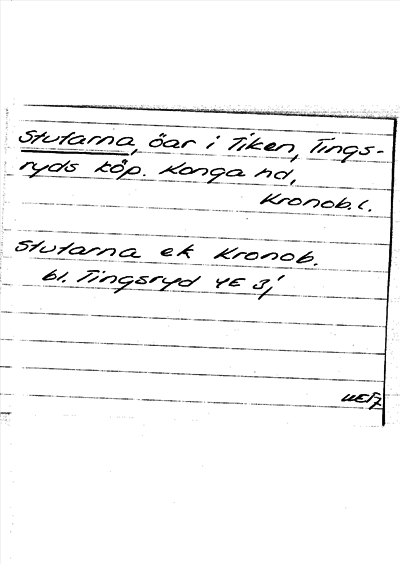 Stutarna, öar i Tiken, Tings-
ryds köp. Konga hd,
Kronob. l.
Stutarna ek Kronob.
bl. Tingsryd 4E 3j